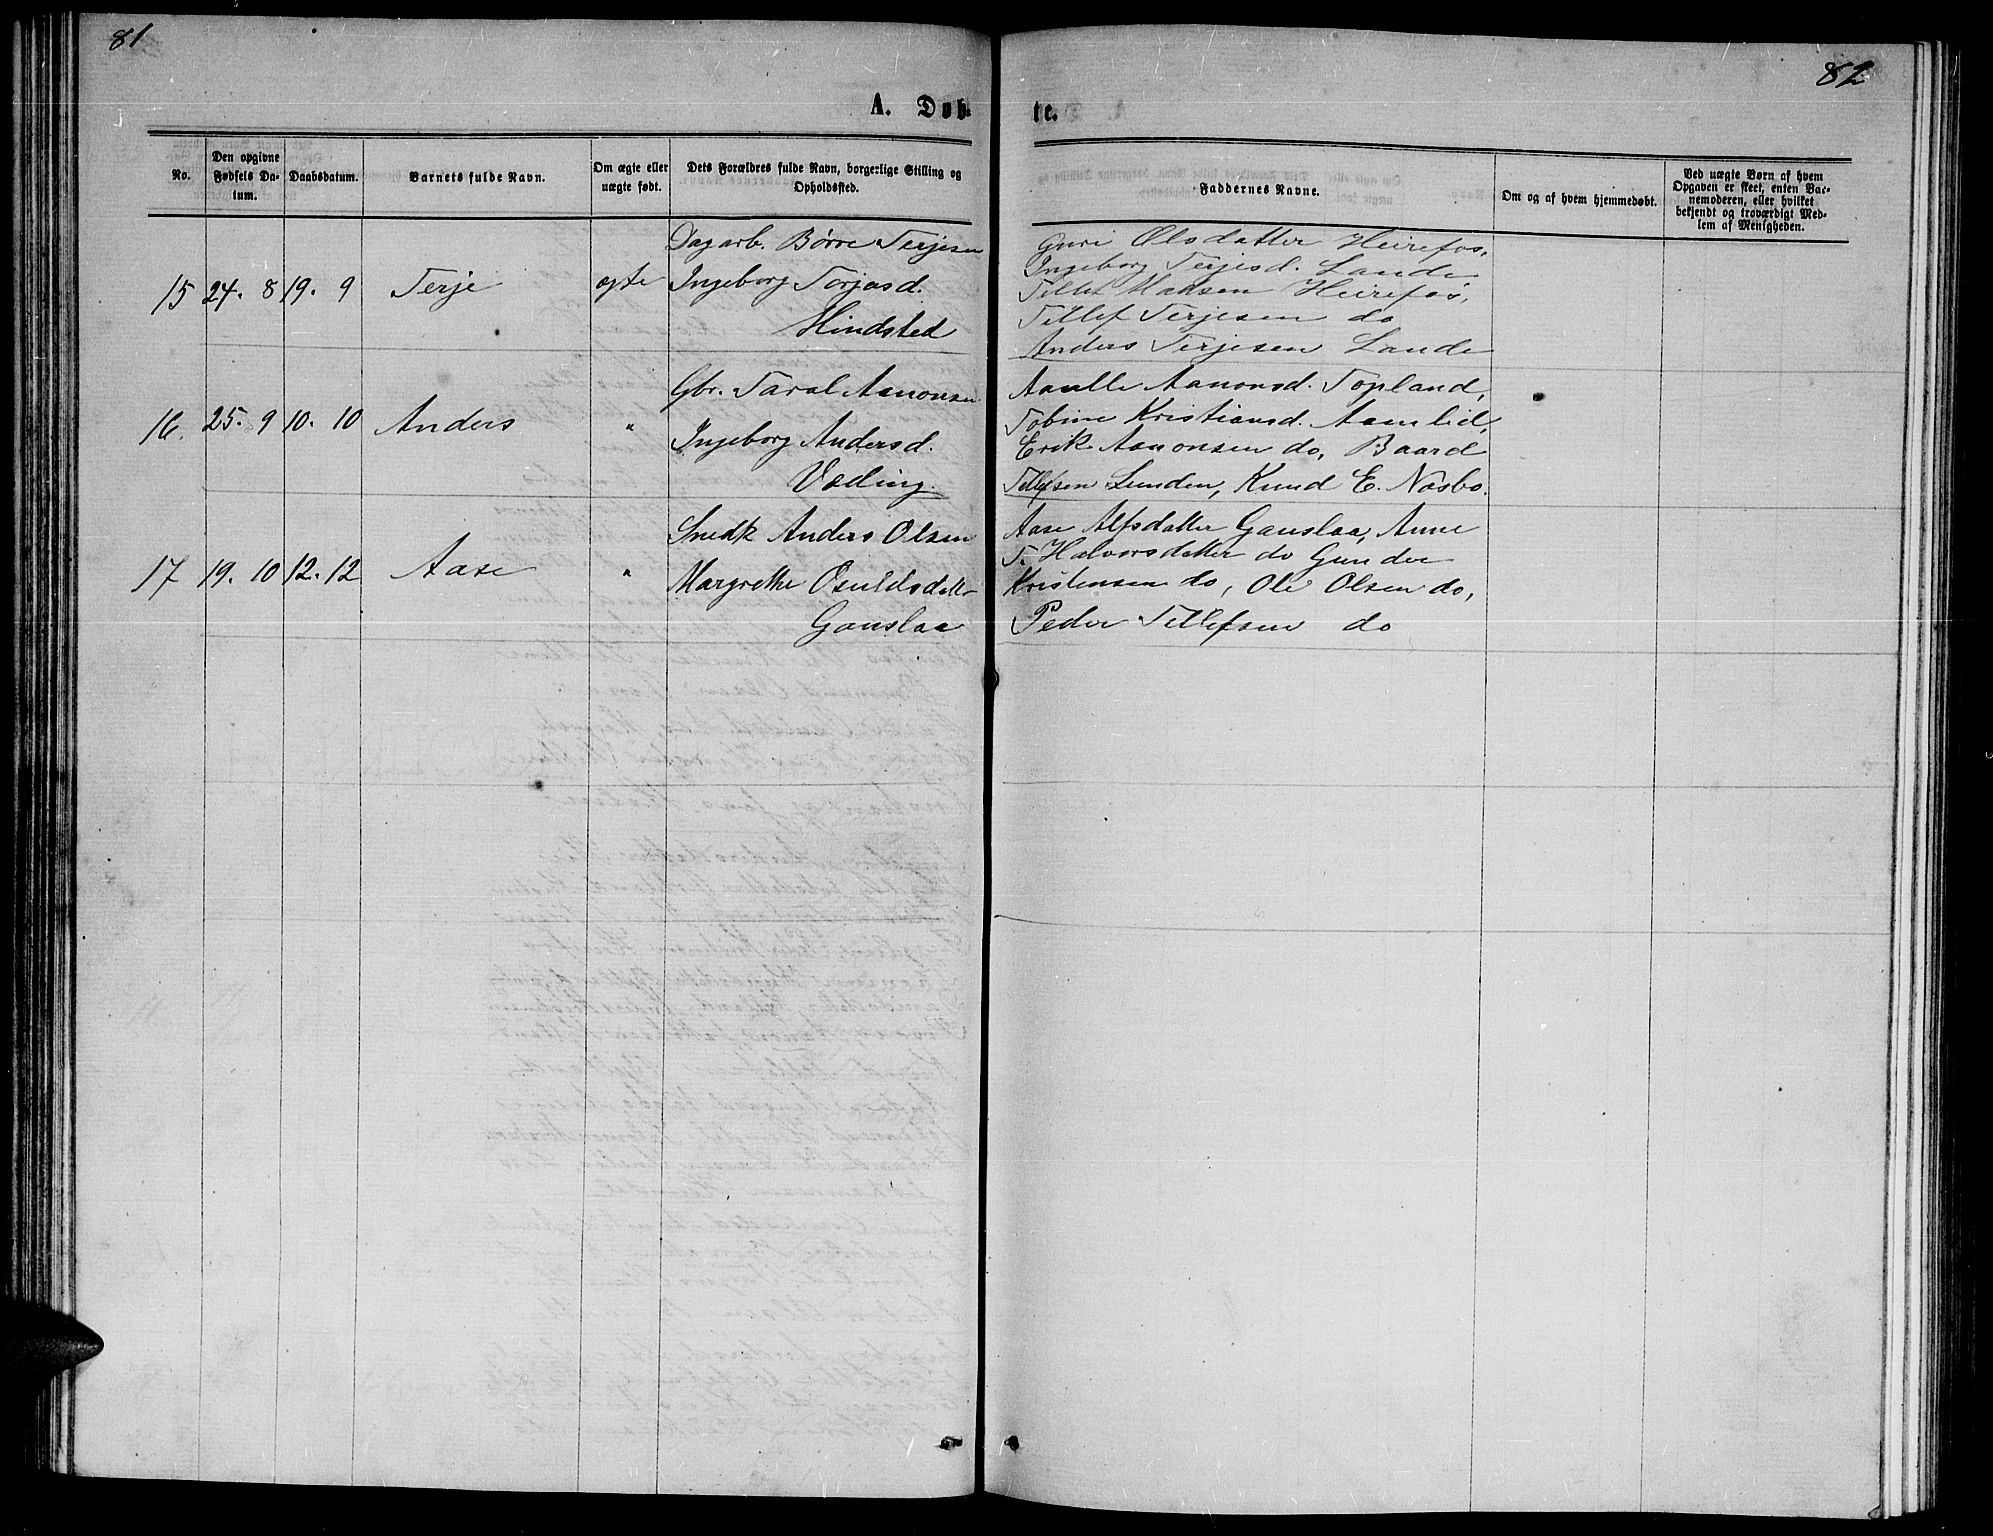 81
82
A. Døb
te.
No.
Den opgivne Fødsels Da-tum.
Daabsdatum.
Barnets fulde Navn.
Om ægte eller uægte født.
Dets Forældres fulde Navn, borgerlige Stilling og Opholdssted.
Faddernes Navne.
Om og af hvem hjemmedøbt.
Ved uægte Børn af hvem Opgaven er skeet, enten Bar-nemoderen, eller hvilket bekjendt og troværdigt Med-lem af Menigheden.
Dagarb. Børre Terjesen
15 24. 8 19. 9 Terje ægte Ingeborg Torjasd.
Hindsted
Guri Olsdatter Heirefos,
Ingeborg Terjesd. Lande
Tellef Hansen Heirefos,
Tellef Terjesen do
Anders Terjesen Lande
Gbr. Taral Aanonsen
16. 25. 9 10. 10 Anders " Ingeborg Andersd.
Væding.
Aanonsd. Topland,
Tobine Kristiansd. Aamlid,
Erik Aanonsen do, Baard
Tellefsen Lunden, Knud E. Næsbø.
Snedk Anders Olsen
17 19. 10 12. 12 Aase " Margrethe Osuldsdatt
Gauslaa
Aase Alfsdatter Gauslaa, Anne
T. Halvorsdatter do Gunder
Kristensen do, Ole Olsen do,
Peder Tellefsen do